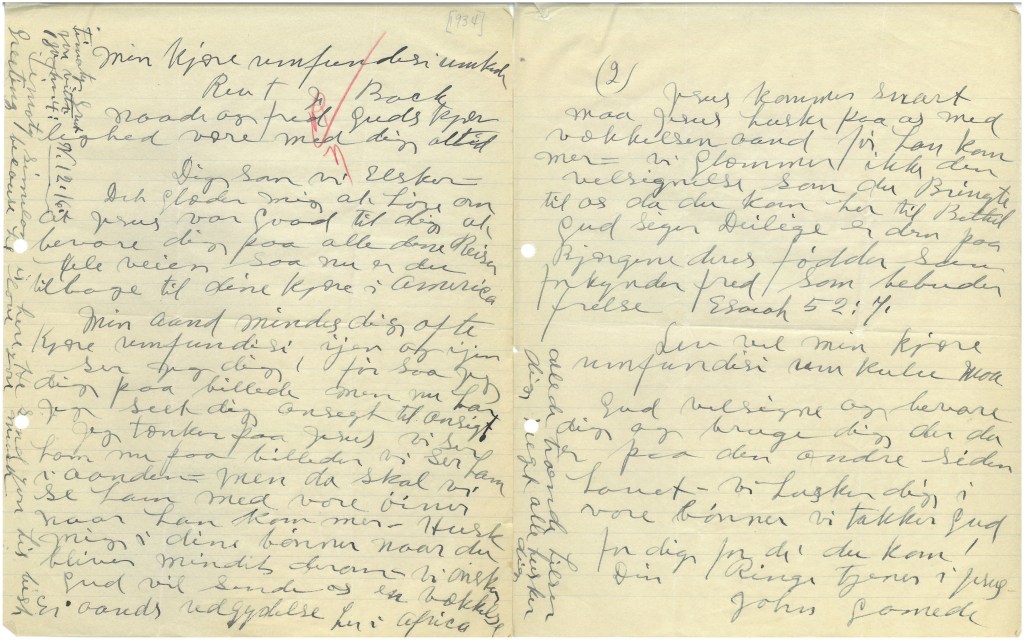 [1934]
Min kjære umfundisi umkulu
Reut A Back
naade og fred Guds kjær
lighed være med dig altid
Dig som vi Elsker =
Det glæder mig at høre om
at Jesus var good til dig at
bevare dig paa alle dine Reiser
hele veien saa nu er du
tilbage til dine kjære i America
Min aand mindes dig ofte
kjære umfundisi, ijen og ijen
ser jeg dig, för saa jeg
dig paa billede men nu har
jeg seet dig ansegt til ansigt
Jeg tænker paa Jesus vi ser
ham nu paa billeder vi ser ham
i aanden = men da skal vi
se ham med vore öiner
naar han kommer = Husk
mig i dine bönner naar du
bliver mindit derom = vi önsker
Gud vil sende os en vækkelse
ei aands udgydelse her i Africa
Greeting because he love you much
Timot Simelane is here he send you his best
(2)
Jesus kommer snart
maa Jesus huske paa os med
vækkelsen aand för han kom
mer = vi Glæmmer ikke den
velsignelse som du Bringte
til os da du kom her til Bethel
Gud siger Deilige er den paa
Bjærgene deres födder som
forkynder fred som bebuder
frelse Esaiah 52:7.
Lev vel min kjære
umfundisi umkulu maa
Gud velsigne og bevare
dig og bruge dig der du
er paa den andre siden
havet = vi husker dig i
vore bönner vi takker Gud
for dig for di du kom!
Din Ringe tjener i Jesus =
John Gamede
allede troende hilser
dig meget alle husker
dig